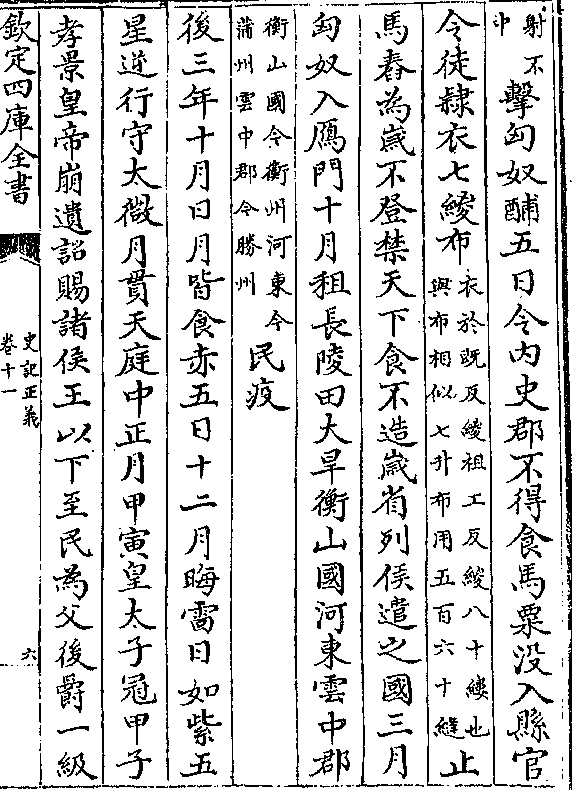 射不
中
擊匈奴酺五日令内史郡不得食馬粟没入縣官
令徒隸衣七緵布
衣於既反緵祖工反緵八十縷也
與布相似七升布用五百六十縫
止
馬舂為歲不登禁天下食不造歲省列侯遣之國三月
匈奴入鴈門十月租長陵田大旱衡山國河東雲中郡
衡山國今衡州河東今
蒲州雲中郡今勝州
民疫
後三年十月日月皆食赤五日十二月晦雷日如紫五
星逆行守太微月貫天庭中正月甲寅皇太子冠甲子
孝景皇帝崩遺詔賜諸侯王以下至民為父後爵一級
欽定四庫全書
史記正義
卷十一
六